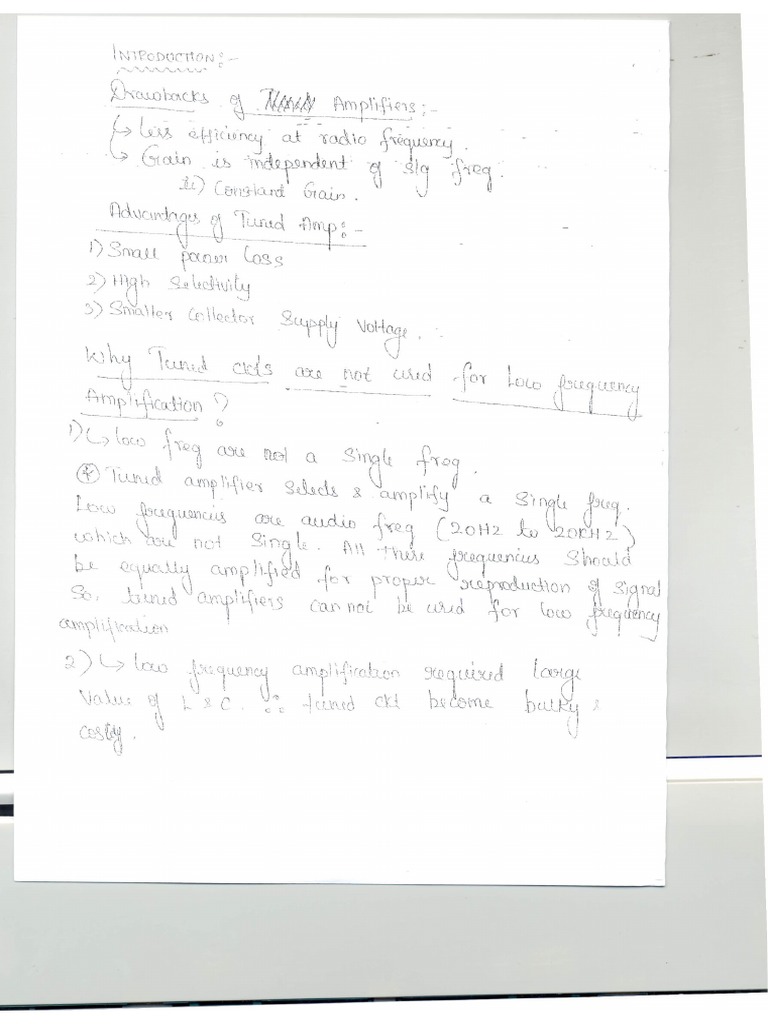 INTRODUCTION:-
Drawbacks of Amplifiers:-
↳ Less efficiency at radio frequency.
↳ Gain is independent of s/g freq.
ie) Constant Gain.
Advantages of Tuned Amp:-
1) Small power Loss
2) High Selectivity
3) Smaller Collector Supply Voltage.
Why Tuned ckts are not used for Low frequency
Amplification?
1) ↳ Low freq are not a Single freq.
Tuned amplifier selects & amplify a Single freq.
Low frequencies are audio freq (20Hz to 20KHz)
which are not Single. All these frequencies Should
be equally amplified for proper reproduction of Signal
So, tuned amplifiers cannot be used for low frequency
amplification
2) ↳ Low frequency amplification required large
Value of L & C. ∴ tuned ckt become bulky &
costly.